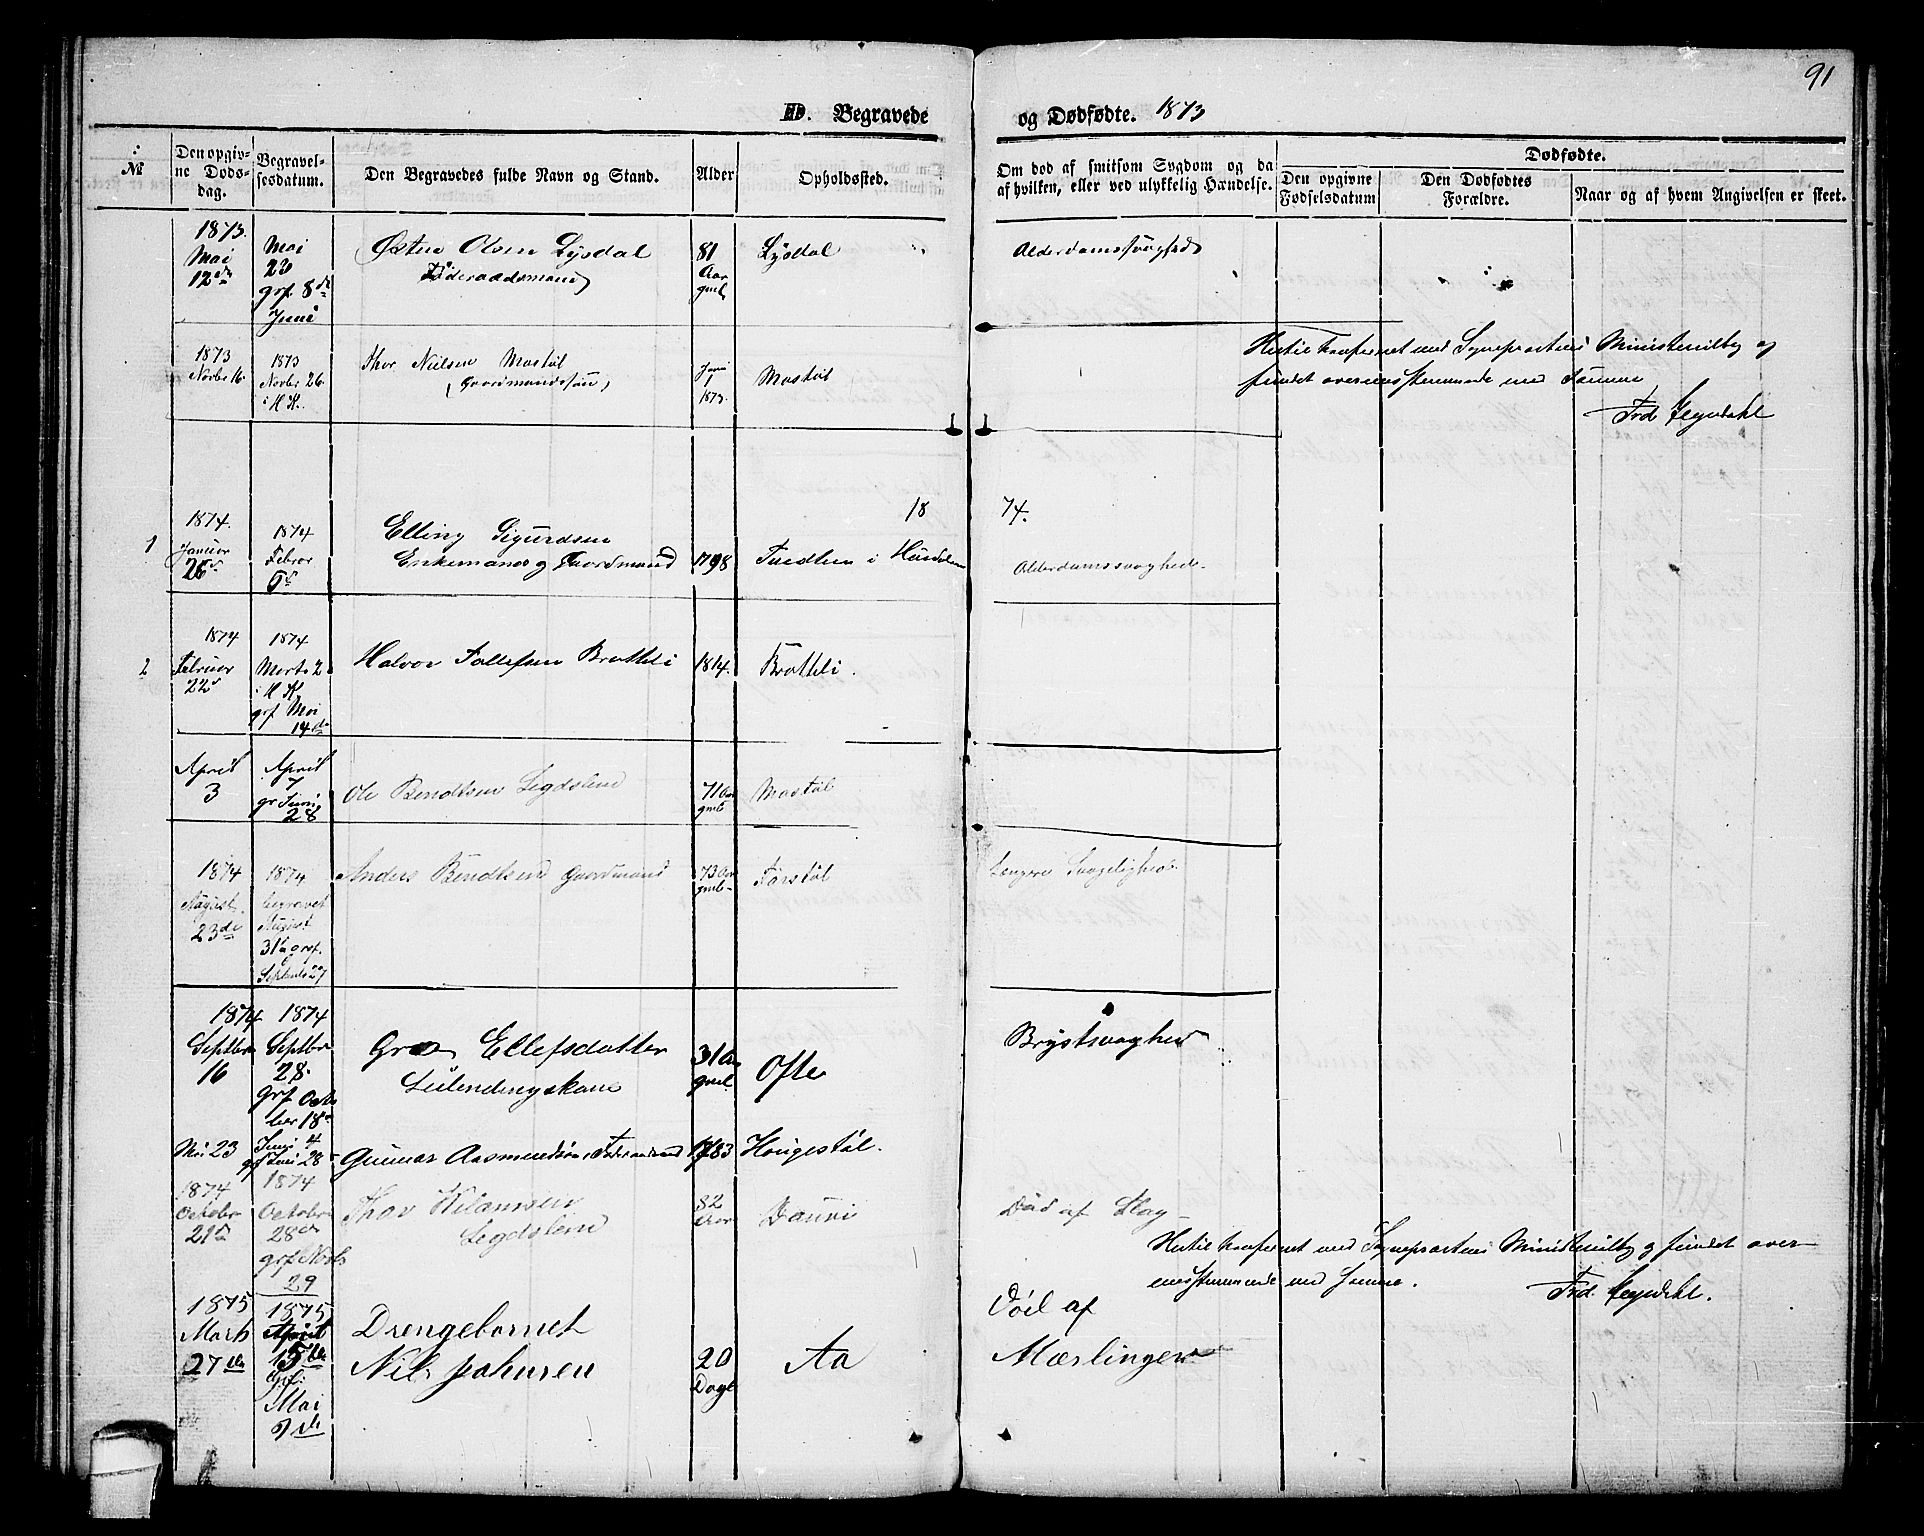 91
D. Begravede og Dødfødte. 1873
№
Den opgiv-
ne Døds-
dag.
Begravel-
sesdatum.
Den Begravedes fulde Navn og Stand.
Alder
Opholdssted.
Om død af smitsom Sygdom og da
af hvilken, eller ved ulykkelig Hændelse.
Dødfødte.
Den opgivne
Fødselsdatum
Den Dødfødtes
Forældre.
Naar og af hvem Angivelsen er skeet.
1873.
Mai
12te
Mai
grf. 8de
Juni
Østen Olsen Lysdal
Føderaadsmand
81
Aar
gml
Lysdal
Alderdomssvaghed
1873
Novbr 16
1873
Novbr 26
i H K.
Thor Nielsen Mostøl
(Gaardmandssøn)
Juni
1
1873.
Mostøl
Hertil conferert med Sognepræstens Ministerialbog og
fundet overensstemmende med Samme
18 74.
1
1874.
Januar
1874
Februar
Elling Sigurdsen
Enkemand og Gaardmand
1798
Alderdomssvaghed.
2
1874
Februar
22
1874
Marts 2
i H K
grf Mai
14de
Halvor Tollefsen Brotteli
1814.
Brotteli.
April
3
April
7
gr Juni
28
Ole Bendtsen Legdslem
71 Aar
gml
Mostøl
1874
August
23de
1874
begravet
August
31te grf.
Septemb 27
Anders Bendtsen Gaardmand
73 Aar
gml
Længere Svagelighed
1874
Septbr
16
1874
Septbr
28.
Grf Octo
ber 18
Ellefsdatter
Leilendingskone
31 Aar
gml
Ofte
Brystsvaghed
Mai 23
Juni 4
grf Juni 28
Gunnar Aasmundsøn Føderaadsmand
1783
Haugestøl.
1874
October
21de
1874
October
28de
grf Novbr
29
Thor
Legdslem
82
Aar
Død af Slag
Hertil conferert med Sognepræstens Ministerialbog og fundet over
ensstemmende med Samme.
1875
Marts
27de
1875
April
5te
Grf.
Mai
Drengebarnet
Nils Johnsen
20
Dage
Aa
Død af
Mæslinger